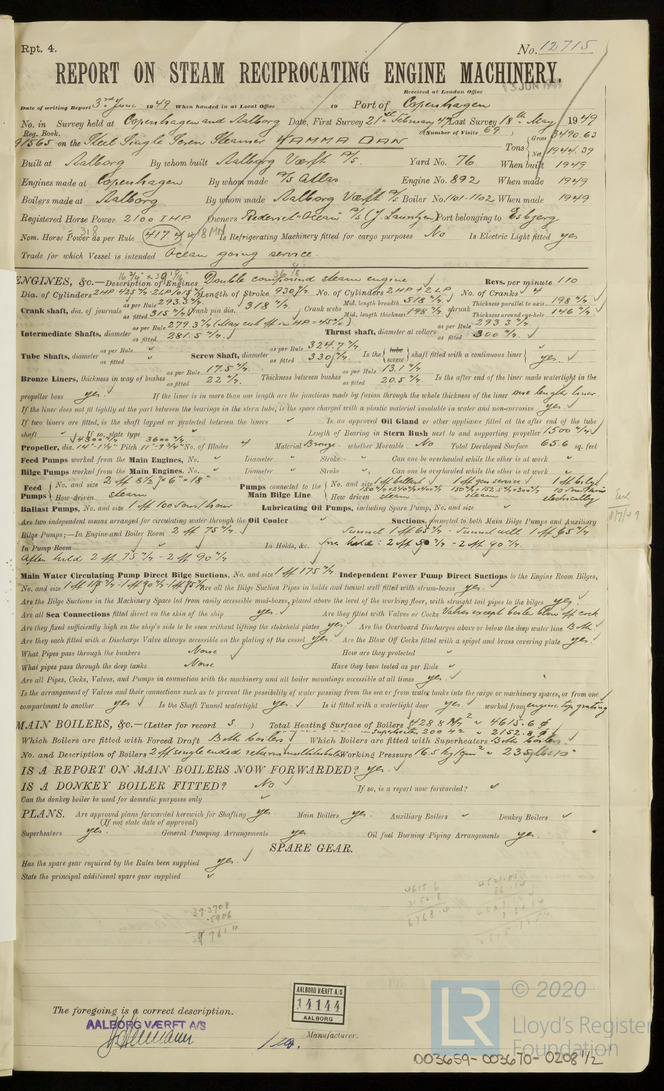 Rpt. 4.
No. 12715
REPORT ON STEAM RECIPROCATING ENGINE MACHINERY.
Received at London Office
Date of writing Report 3rd June 1949 When handed in at Local Office 19 Port of Copenhagen
No. in Survey held at Copenhagen and Aalborg Date, First Survey 21st February 47 Last Survey 18th May 1949
Reg. Book. (Number of Visits 69)
91565 on the Steel Single Screw Steamer HAMMA DAN Tons Gross 3490.63 Net 1944.39
Built at Aalborg By whom built Aalborg Værft A/S Yard No. 76 When built 1949
Engines made at Copenhagen By whom made A/S Atlas Engine No. 892 When made 1949
Boilers made at Aalborg By whom made Aalborg Værft A/S Boiler No. 1101-1102 When made 1949
Registered Horse Power 2100 IHP Owners Port belonging to Esbjerg
Nom. Horse Power as per Rule 417.4 Is Refrigerating Machinery fitted for cargo purposes No Is Electric Light fitted yes
Trade for which Vessel is intended Ocean going service
ENGINES, &c.—Description of Engines Double compound steam engine Revs. per minute 110
Dia. of Cylinders Length of Stroke 930 No. of Cylinders 2HP + 2LP No. of Cranks 4
Crank shaft, dia. of journals as per Rule 293.3 as fitted 315 Crank pin dia. 318 Crank webs Mid. length breadth 518 Mid. length thickness 198 shrunk Thickness parallel to axis 198 Thickness around eye-hole 146
Intermediate Shafts, diameter as per Rule 279.3 as fitted 281.5 Thrust shaft, diameter at collars as per Rule 293.3 as fitted 300
Tube Shafts, diameter as per Rule as fitted Screw Shaft, diameter as per Rule 324.7 as fitted 330 Is the tube screw shaft fitted with a continuous liner yes.
Bronze Liners, thickness in way of bushes as per Rule 17.5 as fitted 22 Thickness between bushes as per Rule 13.1 as fitted 20.5 Is the after end of the liner made watertight in the
propeller boss yes If the liner is in more than one length are the junctions made by fusion through the whole thickness of the liner one length liner
If the liner does not fit tightly at the part between the bearings in the stern tube, is the space charged with a plastic material insoluble in water and non-corrosive yes
If two liners are fitted, is the shaft lapped or protected between the liners Is an approved Oil Gland or other appliance fitted at the after end of the tube
shaft If so, state type Length of Bearing in Stern Bush next to and supporting propeller 1500
Propeller, dia. Pitch No. of Blades 4 Material Bronze whether Moveable No Total Developed Surface 65.6 sq. feet
Feed Pumps worked from the Main Engines, No. Diameter Stroke Can one be overhauled while the other is at work
Bilge Pumps worked from the Main Engines, No. Diameter Stroke Can one be overhauled while the other is at work
Feed Pumps No. and size 2 off 8½" × 6" × 18" How driven steam Pumps connected to the Main Bilge Line No. and size 1 off ballast 1 off gen service 1 off bilge How driven steam steam electrically
Ballast Pumps, No. and size 1 off 100 tons/hour Lubricating Oil Pumps, including Spare Pump, No. and size
Are two independent means arranged for circulating water through the Oil Cooler Suctions, connected to both Main Bilge Pumps and Auxiliary
Bilge Pumps;—In Engine and Boiler Room 2 off 75 Tunnel 1 off 65 Tunnel well 1 off 65
In Pump Room In Holds, &c. Fore hold: 2 off 90 - 2 off 90
After hold 2 off 75 - 2 off 90
Main Water Circulating Pump Direct Bilge Suctions, No. and size 1 off 175 Independent Power Pump Direct Suctions to the Engine Room Bilges,
No. and size Are all the Bilge Suction Pipes in holds and tunnel well fitted with strum-boxes yes.
Are the Bilge Suctions in the Machinery Space led from easily accessible mud-boxes, placed above the level of the working floor, with straight tail pipes to the bilges yes
Are all Sea Connections fitted direct to the skin of the ship yes. Are they fitted with Valves or Cocks Valves except boiler blow off cock
Are they fixed sufficiently high on the ship's side to be seen without lifting the stokehold plates yes Are the Overboard Discharges above or below the deep water line Both
Are they each fitted with a Discharge Valve always accessible on the plating of the vessel yes Are the Blow Off Cocks fitted with a spigot and brass covering plate yes.
What Pipes pass through the bunkers None How are they protected
What pipes pass through the deep tanks None Have they been tested as per Rule
Are all Pipes, Cocks, Valves, and Pumps in connection with the machinery and all boiler mountings accessible at all times yes
Is the arrangement of Valves and their connections such as to prevent the possibility of water passing from the sea or from water tanks into the cargo or machinery spaces, or from one
compartment to another yes Is the Shaft Tunnel watertight yes Is it fitted with a watertight door yes worked from engine top grating
MAIN BOILERS, &c.—(Letter for record S) Total Heating Surface of Boilers 428.8 M² ~ 4615.6
Superheater 200 M² ~ 2152.8
Which Boilers are fitted with Forced Draft Both boilers Which Boilers are fitted with Superheaters Both boilers.
No. and Description of Boilers 2 off single ended return multitubular Working Pressure 16.5 kg/cm² ~ 235
IS A REPORT ON MAIN BOILERS NOW FORWARDED? yes.
IS A DONKEY BOILER FITTED? No If so, is a report now forwarded?
Can the donkey boiler be used for domestic purposes only
PLANS. Are approved plans forwarded herewith for Shafting yes Main Boilers yes. Auxiliary Boilers Donkey Boilers
(If not state date of approval)
Superheaters yes. General Pumping Arrangements yes Oil fuel Burning Piping Arrangements yes.
SPARE GEAR.
Has the spare gear required by the Rules been supplied yes.
State the principal additional spare gear supplied
The foregoing is a correct description.
AALBORG VÆRFT A/S
AALBORG VÆRFT A/S
14144
AALBORG
Manufacturer.
LR
© 2020
Lloyd's Register
Foundation
003659-003670-0208 1/2